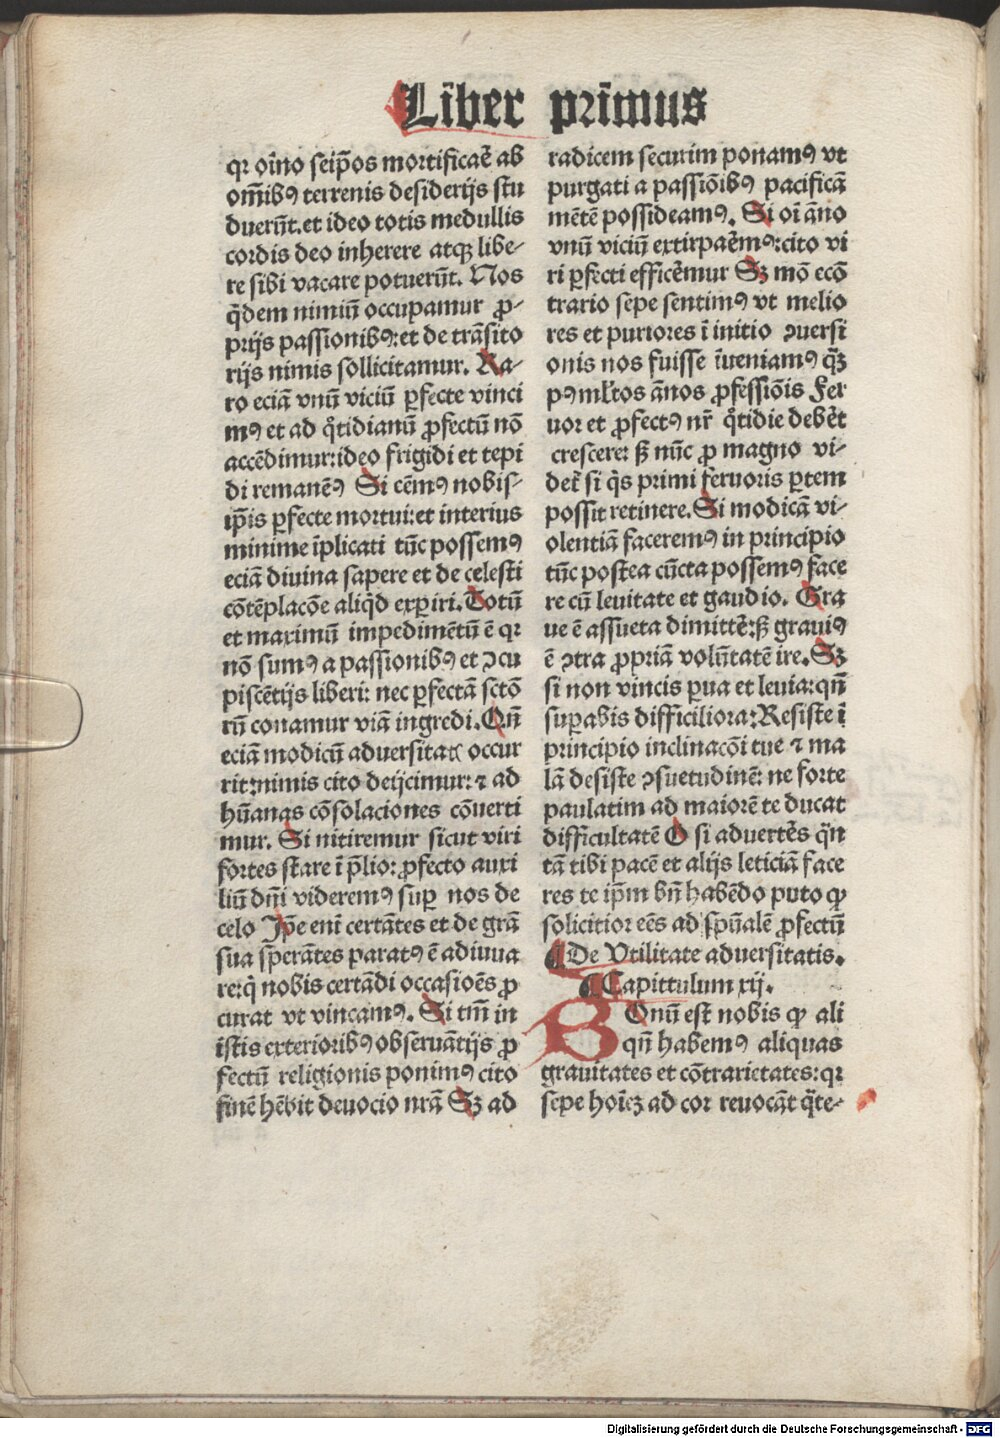 Liber primus
qꝛ oı̄no seip̄os moꝛtificaē ab
om̄ibꝰ terrenis desiderijs stu
duerūt.et ideo totis medullis
coꝛdis deo inherere atqꝫ libe⸗
re sibi vacare potuerūt. Nos
q̄dem nimiū occupamur ꝓ⸗
prijs passionibꝰ:et de trāsito
rijs nimis sollicitamur. Ra⸗
ro eciā vnū viciū ꝑfecte vinci
mꝰ et ad q̊tidianū ꝓfectū nō
accēdimur:ideo frigidi et tepi
di remanēꝰ Si cēmꝰ nobis⸗
ip̄is ꝑfecte moꝛtui:et interius
minime īplicati tūc possemꝰ
eciā diuina sapere et de celesti
cōtēplacōe aliq̇d exꝑiri.Totū
et maximū impedimētū ē qꝛ
nō sumꝰ a passionibꝰ et ꝯcu
piscētijs liberi: nec ꝑfectā sctō
rū conamur viā ingredi.Qn̄
eciā modicū aduersitatꝭ occur
rit:nimis cito deijcimur:⁊ ad
hūanas cōsolaciones cōuerti
mur. Si nitiremur sicut viri
foꝛtes stare ī p̄lio: ꝓfecto auxi
liū dn̄i videremꝰ suꝑ nos de
celo Ip̄e enī certātes et de grā
sua sperātes paratꝰ ē adiuua
re:q̇ nobis certādi occasioēs ꝓ
curat vt vincamꝰ. Si tm̄ in
istis exterioribꝰ obseruātijs ꝓ
fectū religionis ponimꝰ cito
finē hēbit deuocio nrā Sꝫ ad
radicem securim ponamꝰ vt
purgati a passiōibꝰ pacificā
mētē possideamꝰ. Si oī āno
vnū viciū extirpaēmꝰ:cito vi
ri ꝑfecti efficēmur Sꝫ mō ecō
trario sepe sentimꝰ vt melio
res et purioꝛes ī initio ꝯuersi
onis nos fuisse īueniamꝰ q̄ꝫ
pꝰ ml̄tos ānos ꝓfessiōis Fer
uoꝛ et ꝓfectꝰ nr̄ q̊tidie debēt
crescere: ꝭ nūc ꝓ magno vi⸗
det̄ si q̇s primi feruoꝛis ꝑtem
possit retinere.Si modicā vi⸗
olentiā faceremꝰ in principio
tūc postea cūcta possemꝰ face
re cū leuitate et gaudio. Gra
ue ē assueta dimittē:ꝭ grauiꝰ
ē ꝯtra ꝓpriā volūtatē ire.Sꝫ
si non vincis ꝑua et leuia:qn̄
suꝑabis difficilioꝛa:Resiste ī
principio inclinacōi tue ⁊ ma
lā desiste ꝯsuetudinē: ne foꝛte
paulatim ad maioꝛē te ducat
difficultatē O si aduertēs q̄n
tā tibi pacē et alijs leticiā face
res te ip̄m bn̄ habēdo puto ꝙ
solicitioꝛ eēs ad sp̄ualē ꝓfectū
¶De Vtilitate aduersitatis.
¶Capittulum xij.
BOnū est nobis ꝙ ali
qn̄ habemꝰ aliquas
grauitates et cōtrarietates:qꝛ
sepe hoı̄eꝫ ad coꝛ reuocāt q̄te⸗
Digitalisierung gefördert durch die Deutsche Forschungsgemeinschaft - DFG